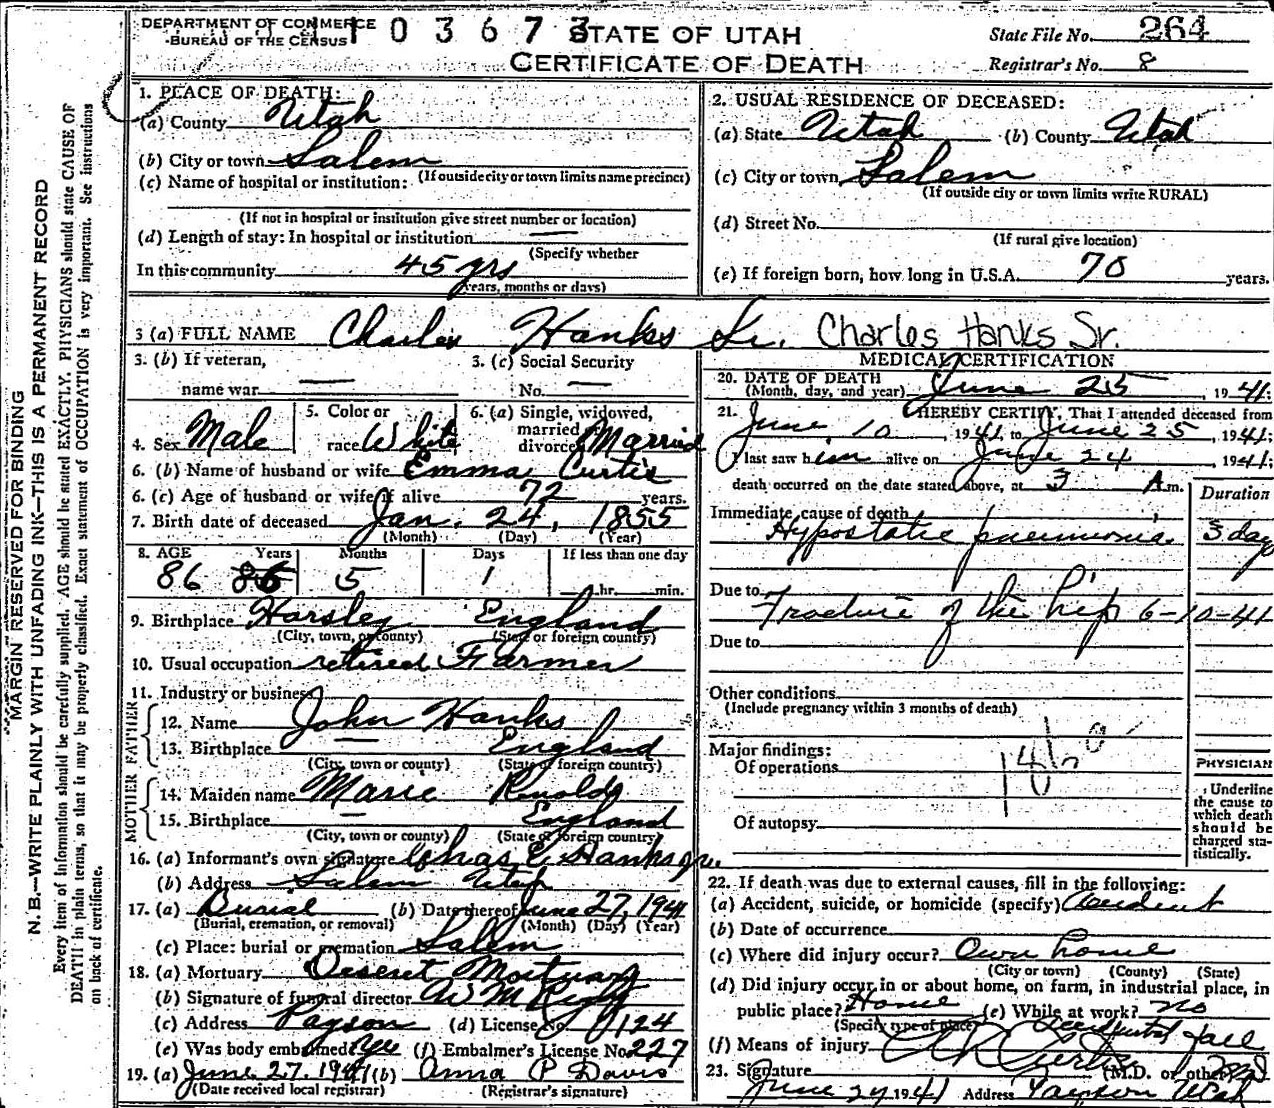 DEPARTMENT OF COMMERCE
BUREAU OF THE CENSUS
1 0 3 6 7 3
STATE OF UTAH
CERTIFICATE OF DEATH
State File No. 264
Registrar's No. 8
MARGIN RESERVED FOR BINDING
N. B.—WRITE PLAINLY WITH UNFADING INK—THIS IS A PERMANENT RECORD
Every item of information should be carefully supplied. AGE should be stated EXACTLY. PHYSICIANS should state CAUSE OF
DEATH in plain terms, so that it may be properly classified. Exact statement of OCCUPATION is very important. See instructions
on back of certificate.
1. PLACE OF DEATH:
(a) County Utah
(b) City or town Salem
(If outside city or town limits name precinct)
(c) Name of hospital or institution:
(If not in hospital or institution give street number or location)
(d) Length of stay: In hospital or institution —
(Specify whether
In this community 45 yrs
years, months or days)
2. USUAL RESIDENCE OF DECEASED:
(a) State Utah (b) County Utah
(c) City or town Salem
(If outside city or town limits write RURAL)
(d) Street No.
(If rural give location)
(e) If foreign born, how long in U.S.A. 70 years.
3 (a) FULL NAME Charles Hanks Sr. Charles Hanks Sr.
3. (b) If veteran, name war —
3. (c) Social Security No. —
4. Sex Male
5. Color or race White
6. (a) Single, widowed, married, divorced Married
6. (b) Name of husband or wife Emma Curtis
6. (c) Age of husband or wife if alive 72 years.
7. Birth date of deceased Jan. 24, 1855
(Month) (Day) (Year)
8. AGE Years Months Days If less than one day
86 86 5 1 hr. min.
9. Birthplace Horsley England
(City, town, or county) (State or foreign country)
10. Usual occupation retired Farmer
11. Industry or business
FATHER
12. Name John Hanks
13. Birthplace — England
(City, town or county) (State or foreign country)
MOTHER
14. Maiden name Marie Rynolds
15. Birthplace — England
(City, town or county) (State or foreign country)
16. (a) Informant's own signature Chas E Hanks Jr.
(b) Address Salem Utah
17. (a) Burial (b) Date thereof June 27, 1941
(Burial, cremation, or removal) (Month) (Day) (Year)
(c) Place: burial or cremation Salem
18. (a) Mortuary Deseret Mortuary
(b) Signature of funeral director W M Rigby
(c) Address Payson (d) License No. 124
(e) Was body embalmed? Yes (f) Embalmer's License No. 227
19. (a) June 27. 1941 (b) Anna P Davis
(Date received local registrar) (Registrar's signature)
MEDICAL CERTIFICATION
20. DATE OF DEATH
(Month, day, and year) June 25 1941;
21. I HEREBY CERTIFY, That I attended deceased from
June 10, 1941 to June 25, 1941;
I last saw him alive on June 24 1941;
death occurred on the date stated above, at 3 A m.
Duration
Immediate cause of death
Hypostatic pneumonia 3 days
Due to Fracture of the hip 6-10-41
Due to
Other conditions
(Include pregnancy within 3 months of death)
Major findings:
Of operations
Of autopsy
PHYSICIAN
Underline
the cause to
which death
should be
charged sta-
tistically.
22. If death was due to external causes, fill in the following:
(a) Accident, suicide, or homicide (specify) Accident
(b) Date of occurrence
(c) Where did injury occur? Own home
(City or town) (County) (State)
(d) Did injury occur in or about home, on farm, in industrial place, in
public place? Home (e) While at work? no
(Specify type of place)
(f) Means of injury Accidental fall
23. Signature (M.D. or other) MD
June 27 1941 Address Payson Utah